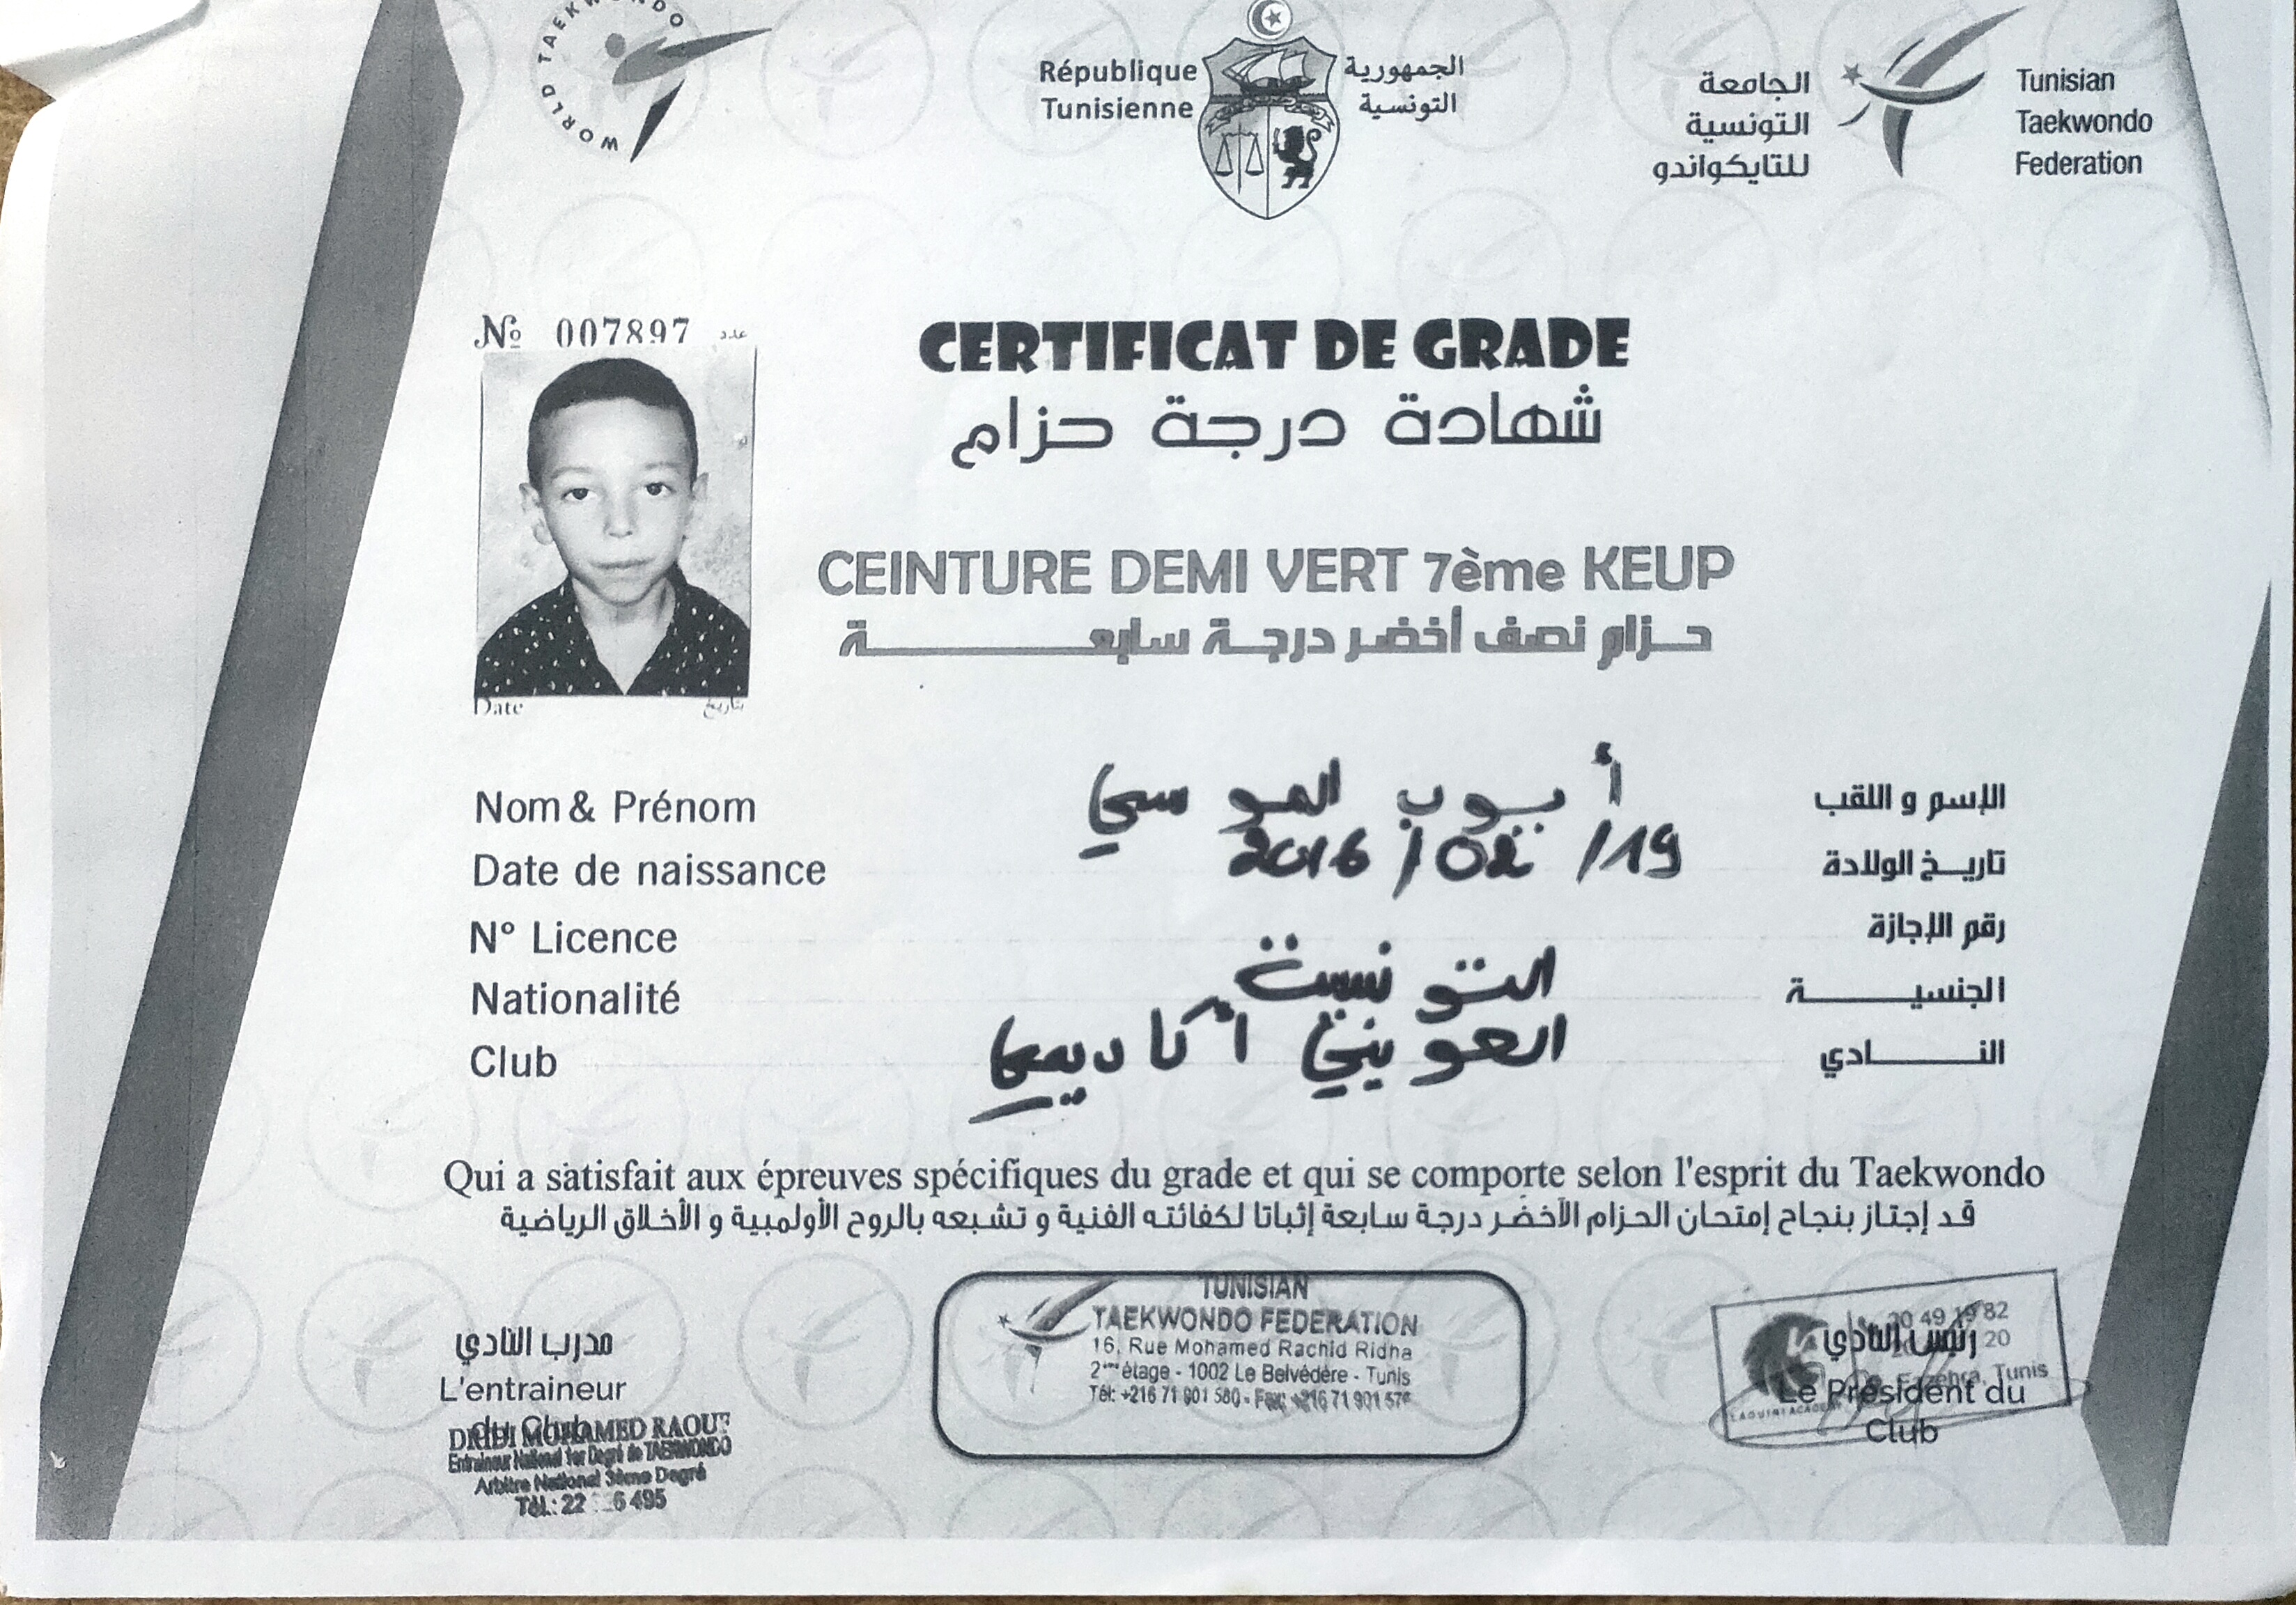 WORLD TAEKWONDO
République
Tunisienne
الجمهورية
التونسية
الجامعة
التونسية
للتايكواندو
Tunisian
Taekwondo
Federation
№ 007897 عدد
CERTIFICAT DE GRADE
شهادة درجة حزام
CEINTURE DEMI VERT 7ème KEUP
حزام نصف أخضر درجة سابعة
Date بتاريخ
Nom & Prénom أيوب الموسي الإسم و اللقب
Date de naissance 19/02/2016 تاريخ الولادة
N° Licence رقم الإجازة
Nationalité التونسية الجنسية
Club العويني أكاديمي النادي
Qui a satisfait aux épreuves spécifiques du grade et qui se comporte selon l'esprit du Taekwondo
قد إجتاز بنجاح إمتحان الحزام الأخضر درجة سابعة إثباتا لكفائته الفنية و تشبعه بالروح الأولمبية و الأخلاق الرياضية
مدرب النادي
L'entraineur
du Club
DRIDI MOHAMED RAOUF
Entraineur National 1er Degré de TAEKWONDO
Arbitre National 3ème Degré
Tél.: 22 6 495
TUNISIAN
TAEKWONDO FEDERATION
16, Rue Mohamed Rachid Ridha
2ème étage - 1002 Le Belvédère - Tunis
Tél: +216 71 901 580 - Fax: +216 71 901 576
20 49 19 82
رئيس النادي
20
Ezzahra, Tunis
LAOUINI ACADEMY
Le Président du
Club